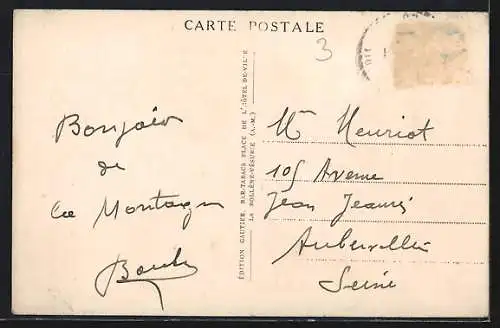 CARTE POSTALE
3
Bonjour
de
La Montagne
ÉDITION GAUTIER, BAR-TABACS, PLACE DE L'HÔTEL-DE-VILLE
LA BOLLÈNE-VÉSUBIE (A.-M.)
Mr Henriot
105 Avenue
Jean Jaurès
Aubervilliers
Seine